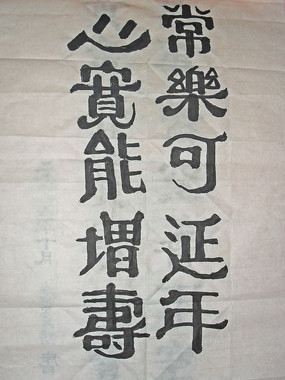 常樂可延年
心寬能增壽